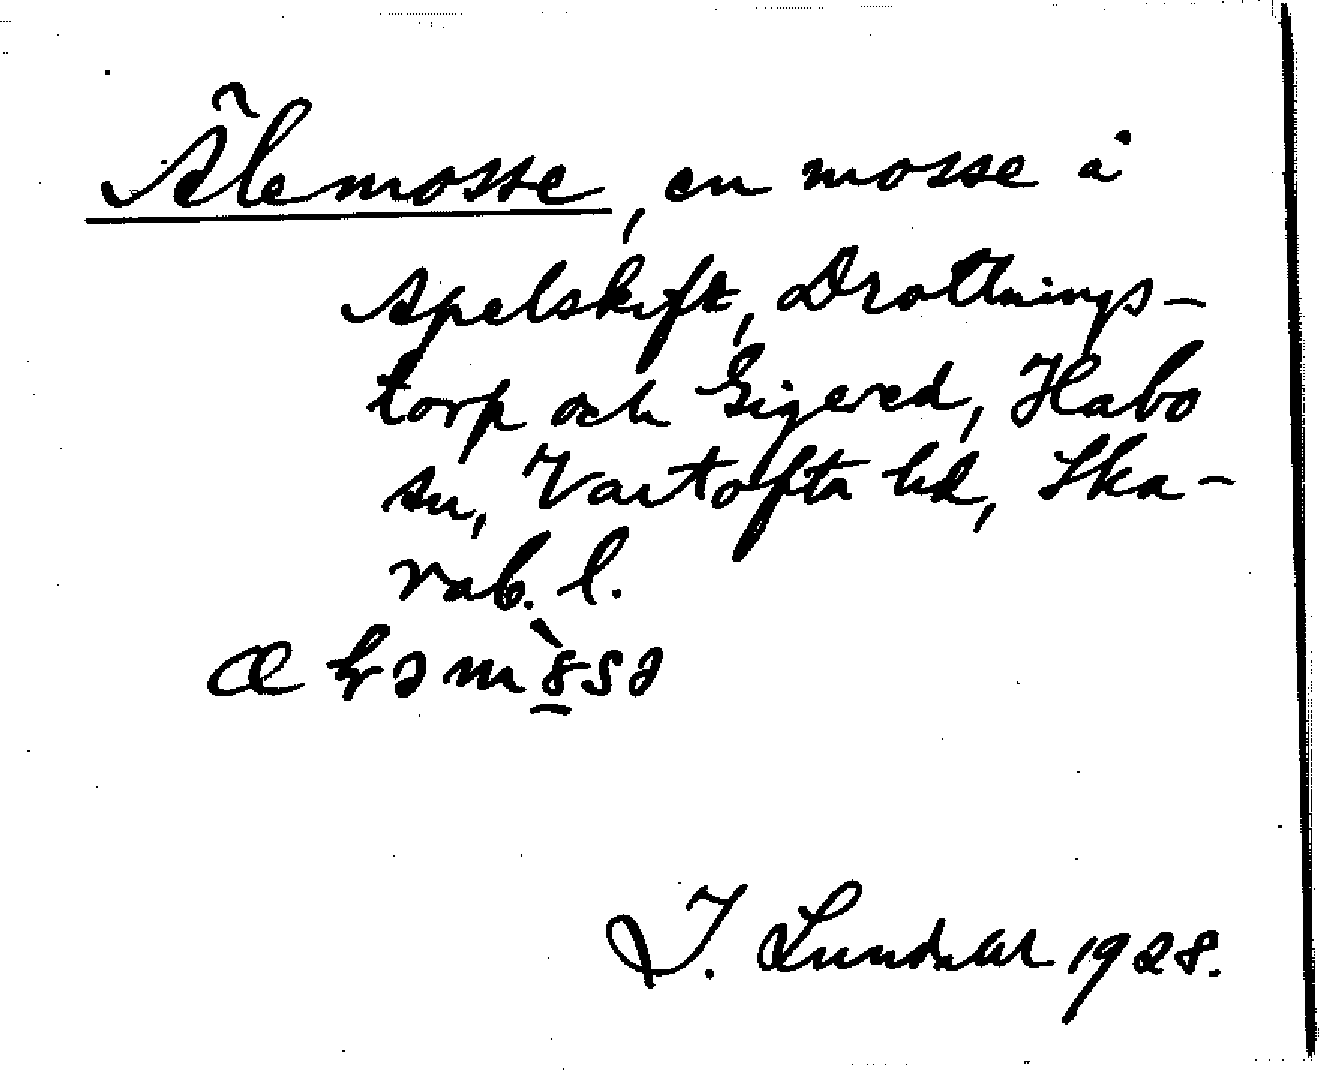 Älemosse, en mosse å
Apelskift, Drottnings-
torp och Sigered, Habo
sn, Vartofta hd, Ska-
rab. l.
I. Lundahl 1928.